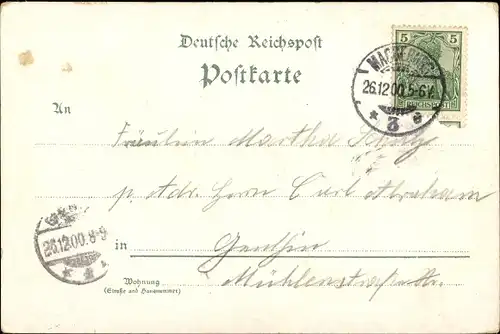 Deutsche Reichspost
5 5
Postkarte
MAGDEBURG
26.12.00.5-6N.
REICHSPOST
* 3 e
An
Fräulein Martha
p. Adr. Herrn Carl Abraham
26.12.00.8-9
in Genthin
Wohnung
(Straße und Hausnummer)
Mühlenstraße